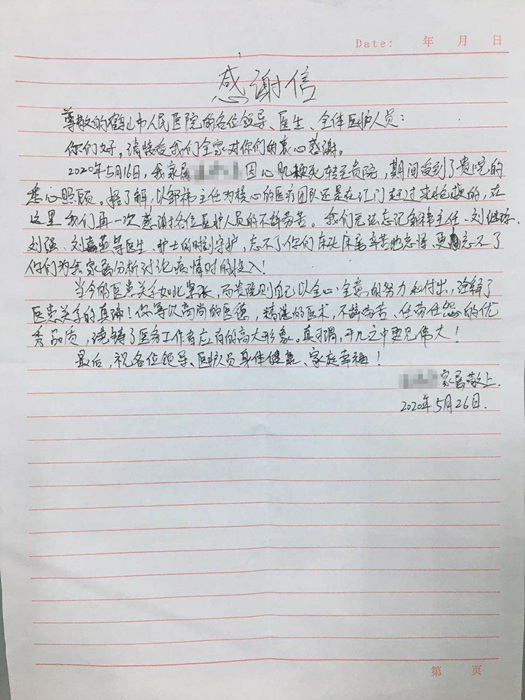 Date: 年 月 日
感谢信
尊敬的鹤山市人民医院的各位领导、医生、全体医护人员:
你们好,请接受我们全家对你们的衷心感谢。
2020年5月16日,我家属 因心肌梗死转至贵院,期间受到了贵院的
悉心照顾。据了解,以邹祎主任为核心的医疗团队还是在江门赶过来抢救的,在
这里我们再一次感谢各位医护人员的不辞劳苦。我们无法忘记 主任、刘
刘 等医生、护士的时刻守护,忘不了你们在病床 辛苦的 ,更忘不了
你们为我家属分析讨论病情时的投入!
当今的医患关系如此紧张,而贵院则自己以全心全意的努力和付出,诠释了
医患关系的真谛!你们高尚的医德,精湛的医术,不辞劳苦、任劳任怨的优
秀品质,铸了医务工作者应有的高大形象。真可谓,平凡之中更见伟大!
最后,祝各位领导、医护人员身体健康、家庭幸福!
家属敬上.
2020年5月26日.
第 页